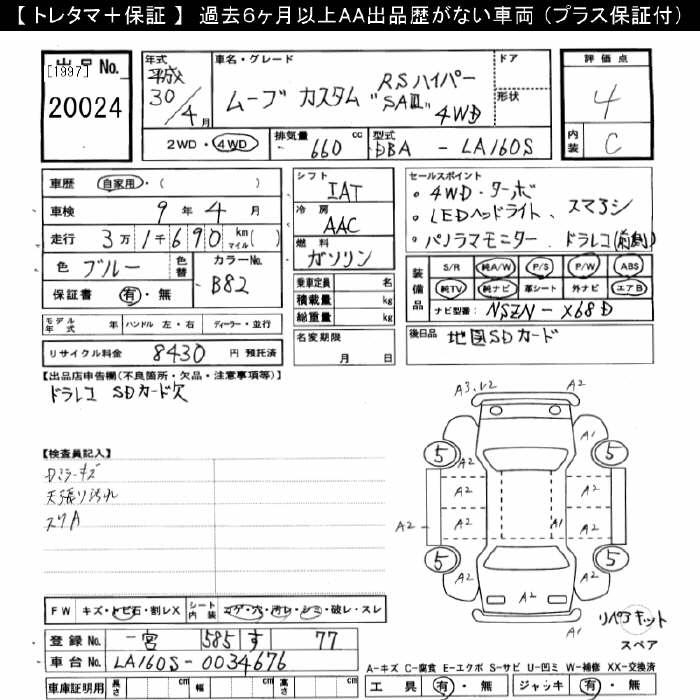 【トレタマ＋保証】 過去６ヶ月以上ＡＡ出品歴がない車両（プラス保証付）
[1997]
出品 No.
20024
年式
平成
30/4月
車名・グレード
ムーブ カスタム RSハイパー "SAⅢ" 4WD
ドア
形状
評価点
4
内装
C
2WD・4WD
排気量 660 cc
型式 DBA - LA160S
車歴 自家用・( )
車検 9年 4月
走行 3万1千690 km マイル( )
色 ブルー 色替
カラーNo. B82
保証書 有・無
シフト
IAT
冷房
AAC
燃料
ガソリン
乗車定員 名
積載量 kg
総重量 kg
セールスポイント
・4WD・ターボ
・LEDヘッドライト、
・パノラマモニター、ドラレコ(前方)
装備品
S/R 純A/W P/S P/W ABS
純TV 純ナビ 革シート 外ナビ エアB
ナビ型番: NSZN-X68D
モデル年式 年 ハンドル 左・右 ディーラー・並行
リサイクル料金 8430 円 預託済
名変期限
月 日
後日品 地図SDカード
【出品店申告欄(不良箇所・欠品・注意事項等)】
ドラレコ SDカード欠
【検査員記入】
Dミラーキズ
天張り汚れ
スリA
A3.V2 A2
A2 A1
5 5
A2 A2
A2 A2
A2 A2 A1 A2
5 5
A2 A2
A2
A1
リペアキット
スペア
FW キズ・トビ石・割レX シート内装 コゲ・穴・汚レ・シミ・破レ・スレ
登録 No. 一宮 585 す 77
車台 No. LA160S-0034676
車庫証明用 長さ cm 幅 cm 高さ cm
A-キズ C-腐食 E-エクボ S-サビ U-凹ミ W-補修 XX-交換済
工具 有・無 ジャッキ 有・無